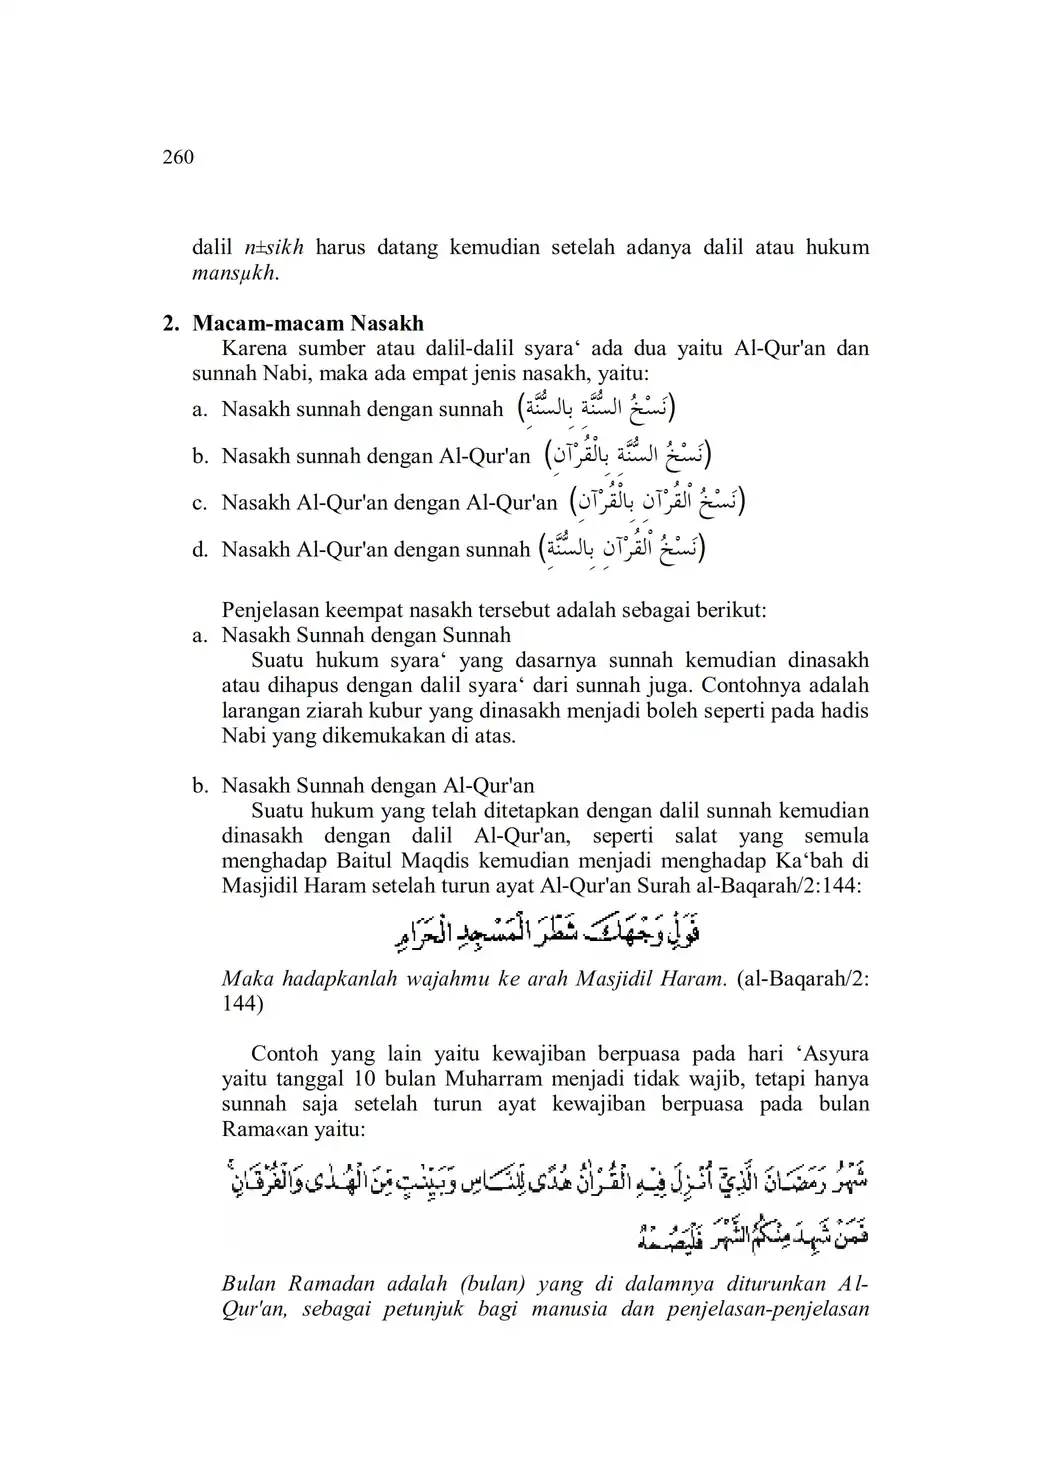 260
dalil n±sikh harus datang kemudian setelah adanya dalil atau hukum
mansµkh.
2. Macam-macam Nasakh
Karena sumber atau dalil-dalil syara‘ ada dua yaitu Al-Qur'an dan
sunnah Nabi, maka ada empat jenis nasakh, yaitu:
a. Nasakh sunnah dengan sunnah (نَسْخُ السُّنَّةِ بِالسُّنَّةِ)
b. Nasakh sunnah dengan Al-Qur'an (نَسْخُ السُّنَّةِ بِالْقُرْآنِ)
c. Nasakh Al-Qur'an dengan Al-Qur'an (نَسْخُ الْقُرْآنِ بِالْقُرْآنِ)
d. Nasakh Al-Qur'an dengan sunnah (نَسْخُ الْقُرْآنِ بِالسُّنَّةِ)
Penjelasan keempat nasakh tersebut adalah sebagai berikut:
a. Nasakh Sunnah dengan Sunnah
Suatu hukum syara‘ yang dasarnya sunnah kemudian dinasakh
atau dihapus dengan dalil syara‘ dari sunnah juga. Contohnya adalah
larangan ziarah kubur yang dinasakh menjadi boleh seperti pada hadis
Nabi yang dikemukakan di atas.
b. Nasakh Sunnah dengan Al-Qur'an
Suatu hukum yang telah ditetapkan dengan dalil sunnah kemudian
dinasakh dengan dalil Al-Qur'an, seperti salat yang semula
menghadap Baitul Maqdis kemudian menjadi menghadap Ka‘bah di
Masjidil Haram setelah turun ayat Al-Qur'an Surah al-Baqarah/2:144:
فَوَلِّ وَجْهَكَ شَطْرَ الْمَسْجِدِ الْحَرَامِ
Maka hadapkanlah wajahmu ke arah Masjidil Haram. (al-Baqarah/2:
144)
Contoh yang lain yaitu kewajiban berpuasa pada hari ‘Asyura
yaitu tanggal 10 bulan Muharram menjadi tidak wajib, tetapi hanya
sunnah saja setelah turun ayat kewajiban berpuasa pada bulan
Rama«an yaitu:
شَهْرُ رَمَضَانَ الَّذِيْٓ اُنْزِلَ فِيْهِ الْقُرْاٰنُ هُدًى لِّلنَّاسِ وَبَيِّنٰتٍ مِّنَ الْهُدٰى وَالْفُرْقَانِۚ
فَمَنْ شَهِدَ مِنْكُمُ الشَّهْرَ فَلْيَصُمْهُ
Bulan Ramadan adalah (bulan) yang di dalamnya diturunkan Al-
Qur'an, sebagai petunjuk bagi manusia dan penjelasan-penjelasan